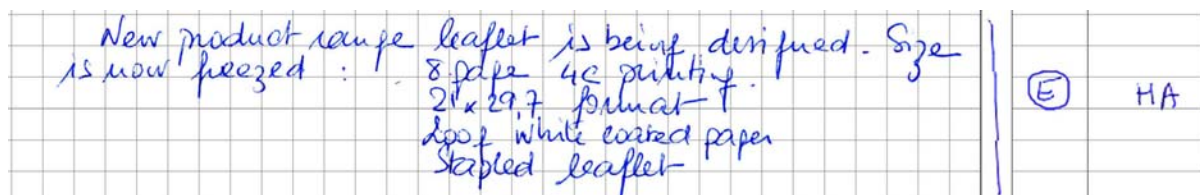 New product range leaflet is being designed. Size
is now freezed : 8 page 4c printing.
21 x 29,7 format
200g white coated paper
Stapled leaflet
E HA